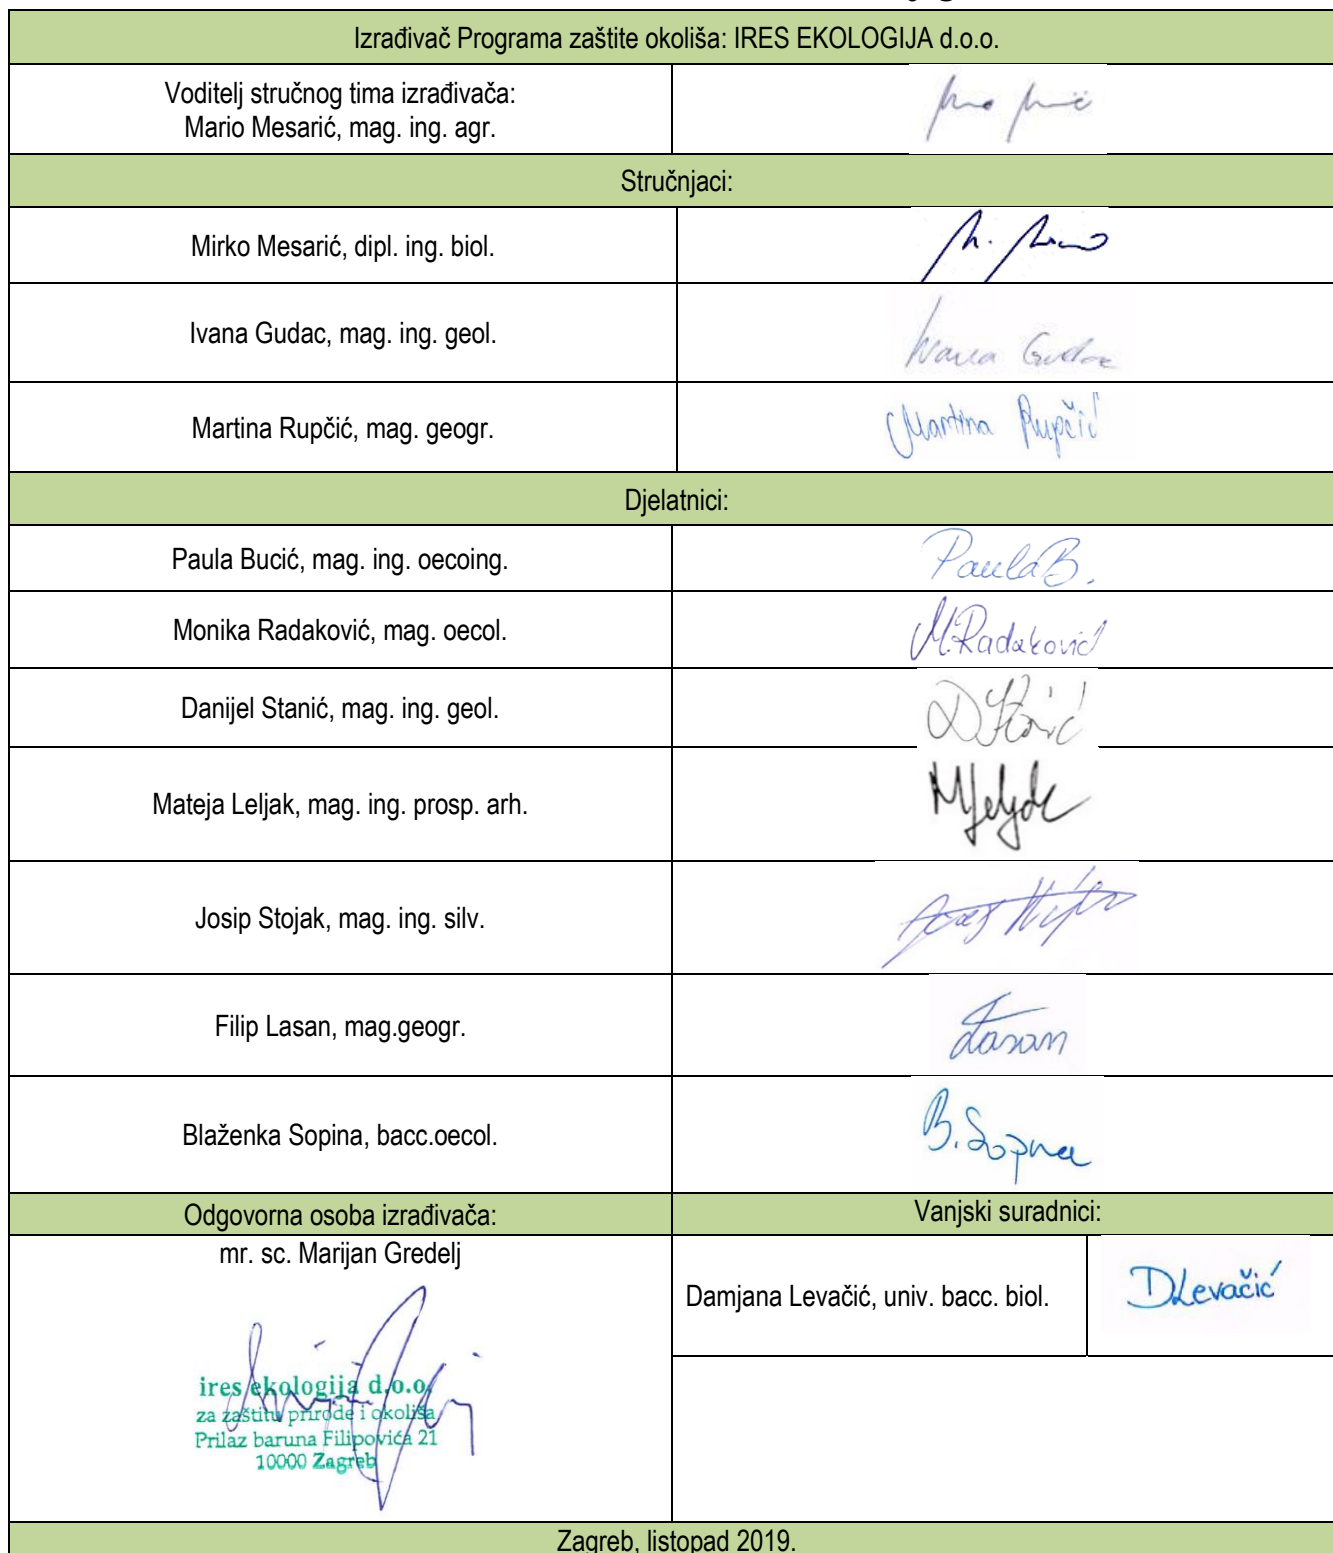 Izrađivač Programa zaštite okoliša: IRES EKOLOGIJA d.o.o.
Voditelj stručnog tima izrađivača:
Mario Mesarić, mag. ing. agr.
Stručnjaci:
Mirko Mesarić, dipl. ing. biol.
Ivana Gudac, mag. ing. geol.
Ivana Gudac
Martina Rupčić, mag. geogr.
Martina Rupčić
Djelatnici:
Paula Bucić, mag. ing. oecoing.
Paula B.
Monika Radaković, mag. oecol.
M.Radaković
Danijel Stanić, mag. ing. geol.
Mateja Leljak, mag. ing. prosp. arh.
Josip Stojak, mag. ing. silv.
Filip Lasan, mag.geogr.
Lasan
Blaženka Sopina, bacc.oecol.
B. Sopina
Odgovorna osoba izrađivača:
Vanjski suradnici:
mr. sc. Marijan Gredelj
Damjana Levačić, univ. bacc. biol.
DLevačić
ires ekologija d.o.o.
za zaštitu prirode i okoliša
Prilaz baruna Filipovića 21
10000 Zagreb
Zagreb, listopad 2019.